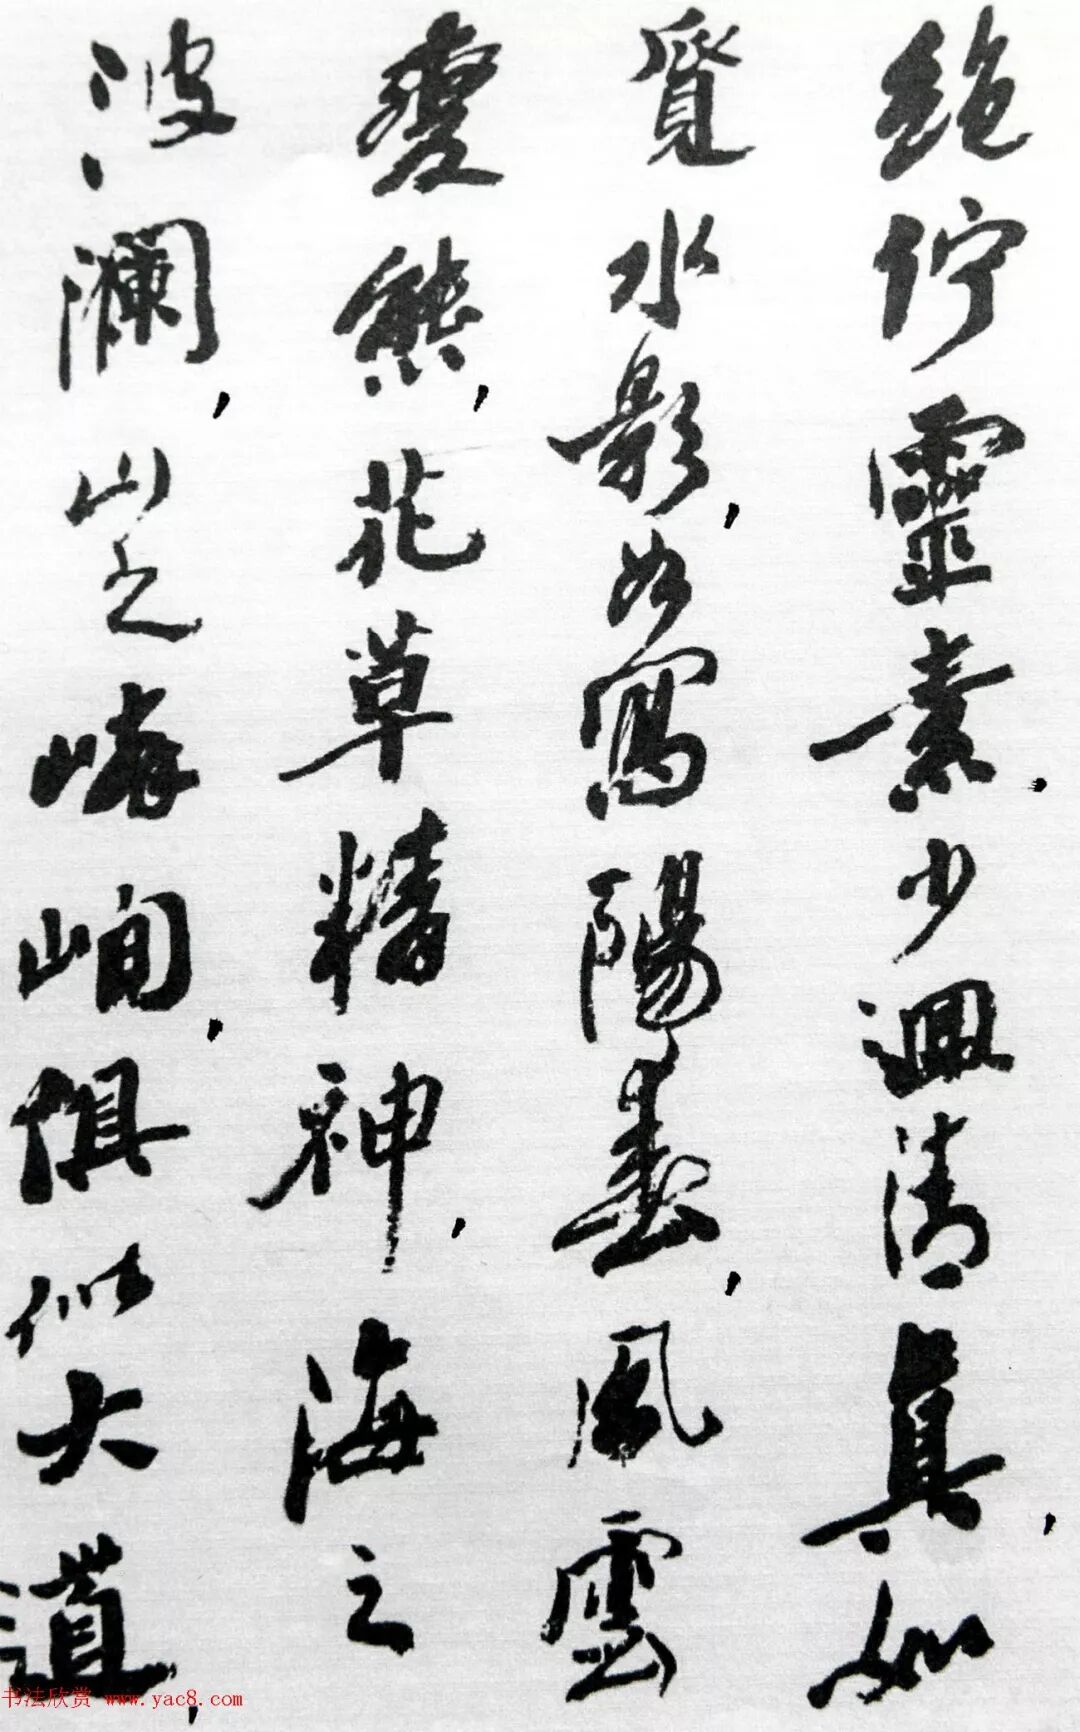 絶佇靈素，少迴清真，如
覓水影，如寫陽春，風雲
變態，花草精神，海之
波瀾，山之嶙峋，俱似大道，
书法欣赏 www.yac8.com